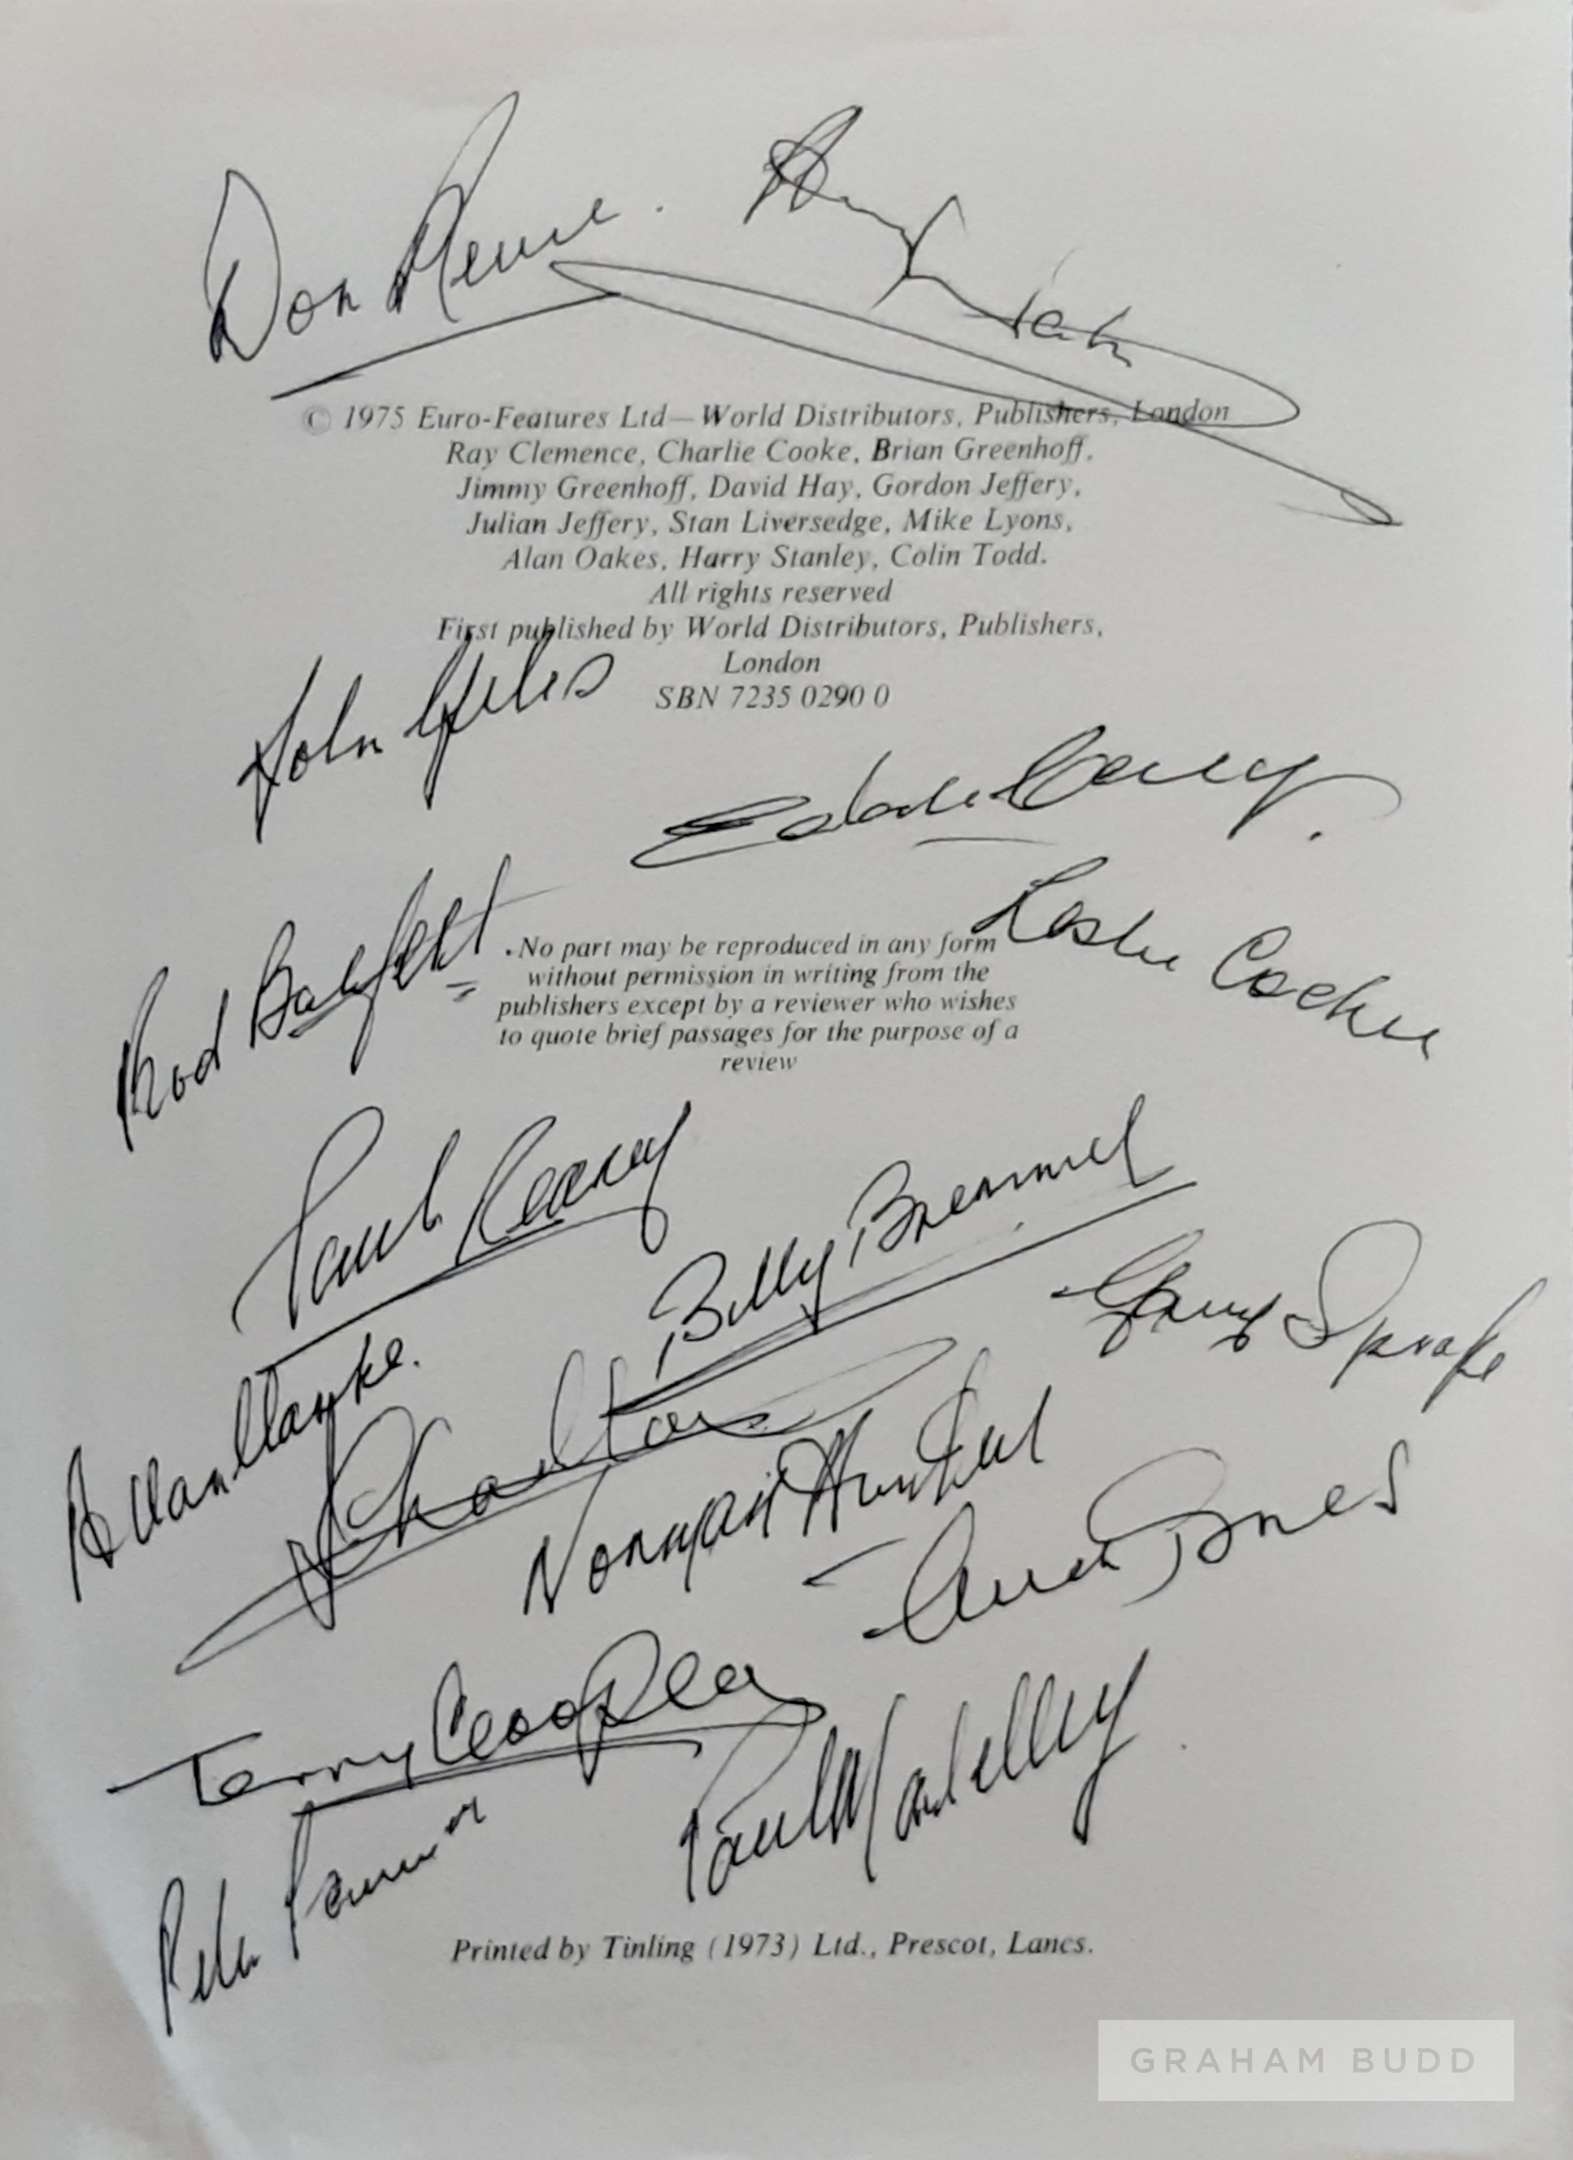 Don Revie.
© 1975 Euro-Features Ltd—World Distributors, Publishers, London
Ray Clemence, Charlie Cooke, Brian Greenhoff,
Jimmy Greenhoff, David Hay, Gordon Jeffery,
Julian Jeffery, Stan Liversedge, Mike Lyons,
Alan Oakes, Harry Stanley, Colin Todd.
All rights reserved
First published by World Distributors, Publishers,
London
SBN 7235 0290 0
John Giles
Eddie Gray.
Leslie Cocker
Rod Belfitt
No part may be reproduced in any form
without permission in writing from the
publishers except by a reviewer who wishes
to quote brief passages for the purpose of a
review
Paul Reaney
Billy Bremner
Gary Sprake
Allan Clarke.
J Charlton
Norman Hunter
Mick Jones
Terry Cooper
Paul Madeley
Peter Lorimer
Printed by Tinling (1973) Ltd., Prescot, Lancs.
GRAHAM BUDD